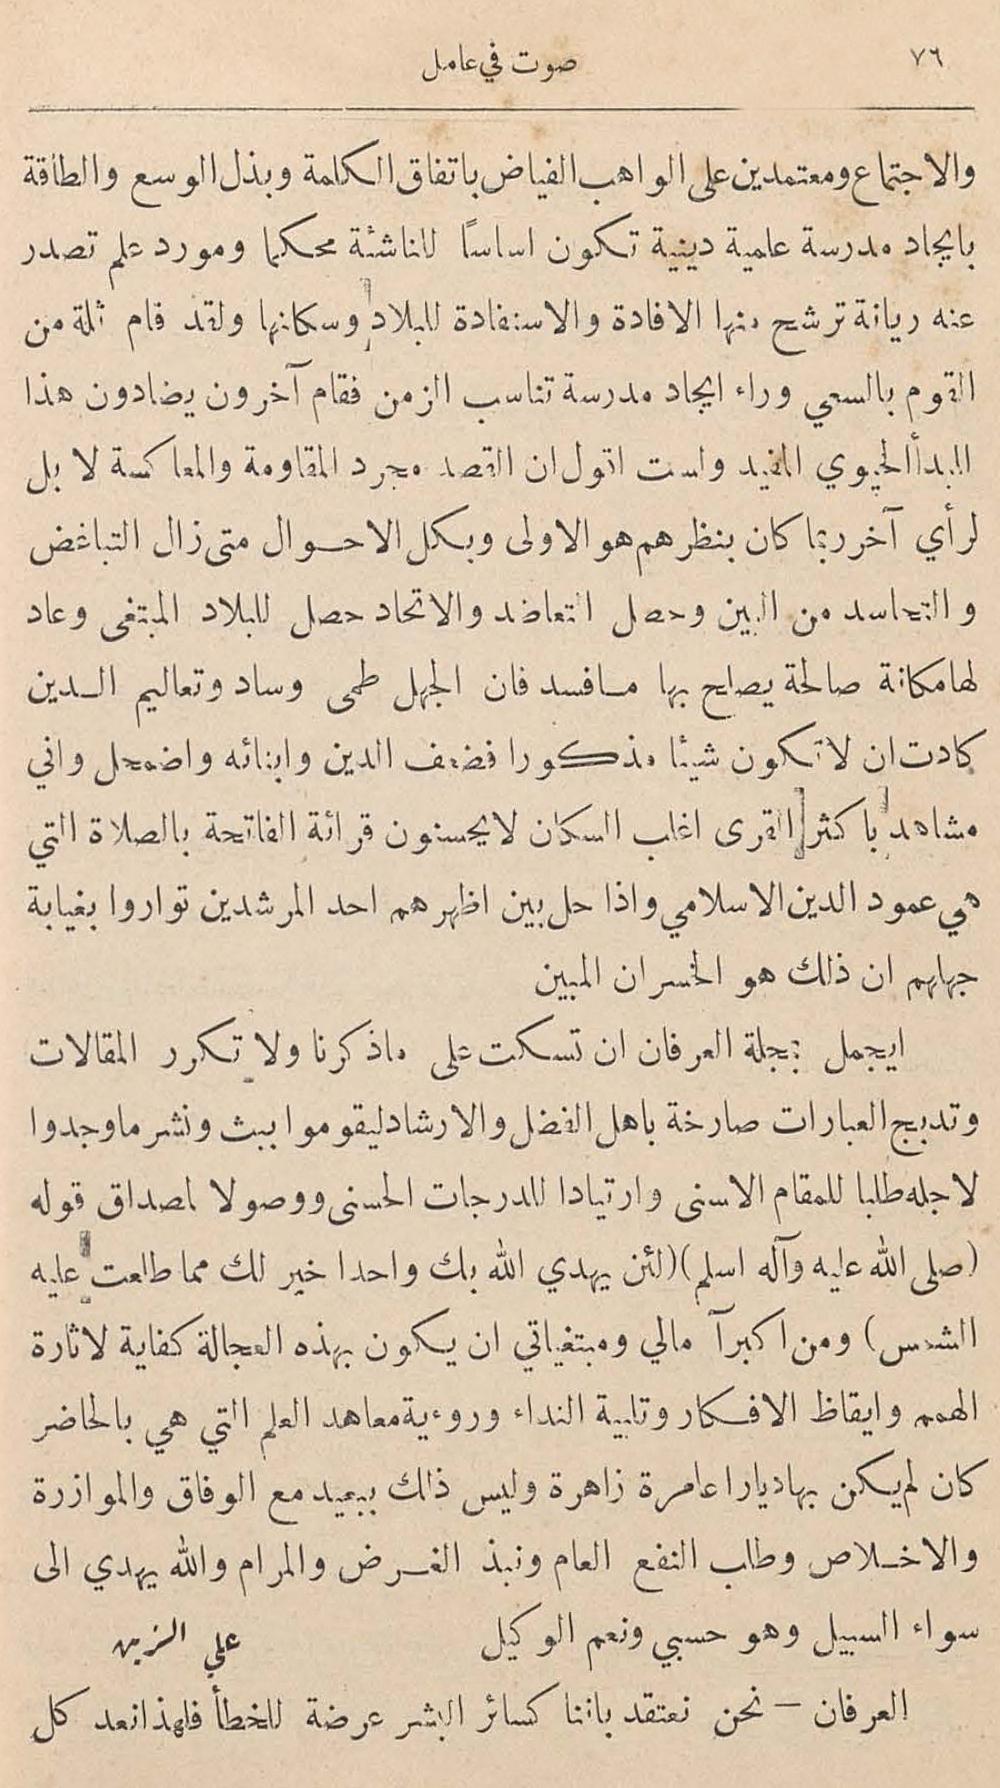 ٧٦
صوت في عامل
والاجتماع ومعتمدين على الواهب الفياض باتفاق الكلمة وبذل الوسع والطاقة
بايجاد مدرسة علمية دينية تكون اساسًا للناشئة محكما ومورد علم تصدر
عنه ريانة ترشح منها الافادة والاستفادة للبلاد وسكانها ولقد قام ثلة من
القوم بالسعي وراء ايجاد مدرسة تناسب الزمن فقام آخرون يضادون هذا
المبدأ الحيوي المفيد ولست اقول ان القصد مجرد المقاومة والمعاكسة لا بل
لرأي آخر ربما كان بنظرهم هو الاولى وبكل الاحوال متى زال التباغض
والتحاسد من البين وحصل التعاضد والاتحاد حصل للبلاد المبتغى وعاد
لها مكانة صالحة يصلح بها مافسد فان الجهل طمى وساد وتعاليم الدين
كادت ان لا تكون شيئا مذكورا فضعف الدين وابنائه واضمحل واني
مشاهد باكثر القرى اغلب السكان لا يحسنون قرائة الفاتحة بالصلاة التي
هي عمود الدين الاسلامي واذا حل بين اظهرهم احد المرشدين تواروا بغيابة
جهلهم ان ذلك هو الخسران المبين
ايجمل بمجلة العرفان ان تسكت على ماذكرنا ولا تكرر المقالات
وتدبج العبارات صارخة باهل الفضل والارشاد ليقوموا ببث ونشر ماوجدوا
لاجله طلبا للمقام الاسنى وارتيادا للدرجات الحسنى ووصولا لمصداق قوله
(صلى الله عليه وآله اسلم) (لئن يهدي الله بك واحدا خير لك مما طلعت عليه
الشمس) ومن اكبر آمالي ومبتغياتي ان يكون بهذه العجالة كفاية لاثارة
الهمم وايقاظ الافكار وتلبية النداء وروءية معاهد العلم التي هي بالحاضر
كان لم يكن بها ديارا عامرة زاهرة وليس ذلك ببعيد مع الوفاق والموازرة
والاخلاص وطلب النفع العام ونبذ الغرض والمرام والله يهدي الى
سواء السبيل وهو حسبي ونعم الوكيل علي الزين
العرفان — نحن نعتقد باننا كسائر البشر عرضة للخطأ فلهذا نعد كل